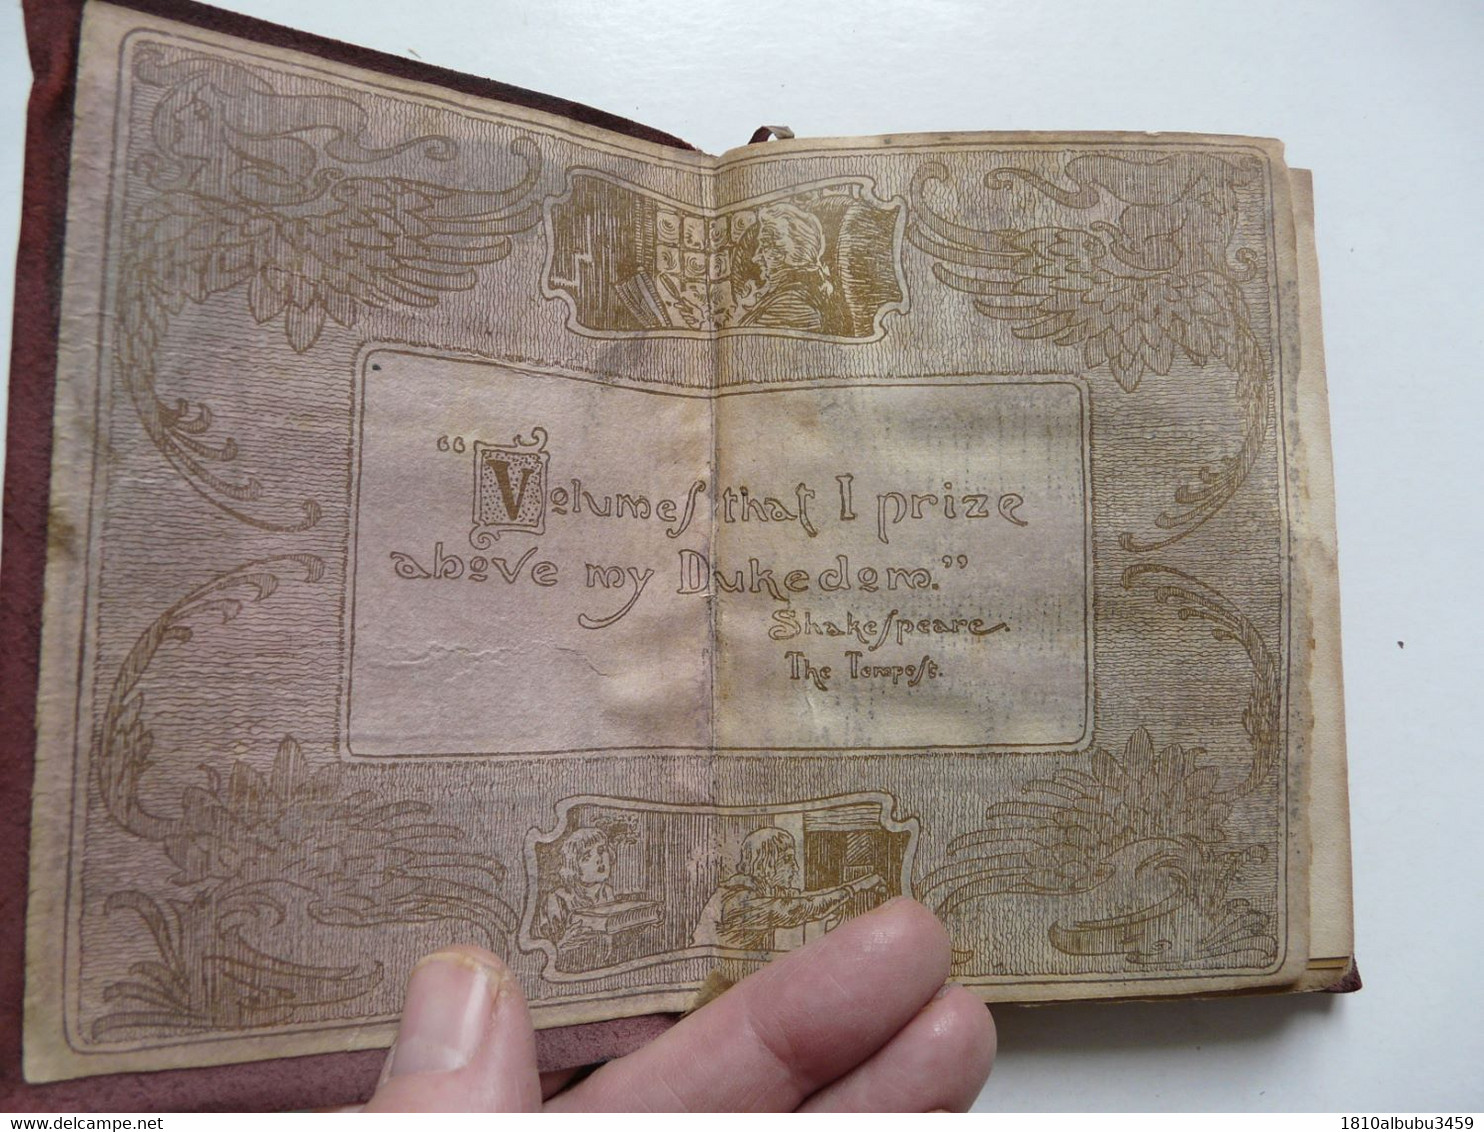 “Volumes that I prize
above my Dukedom.”
Shakespeare.
The Tempest.
delcampe.net
1810albubu3459